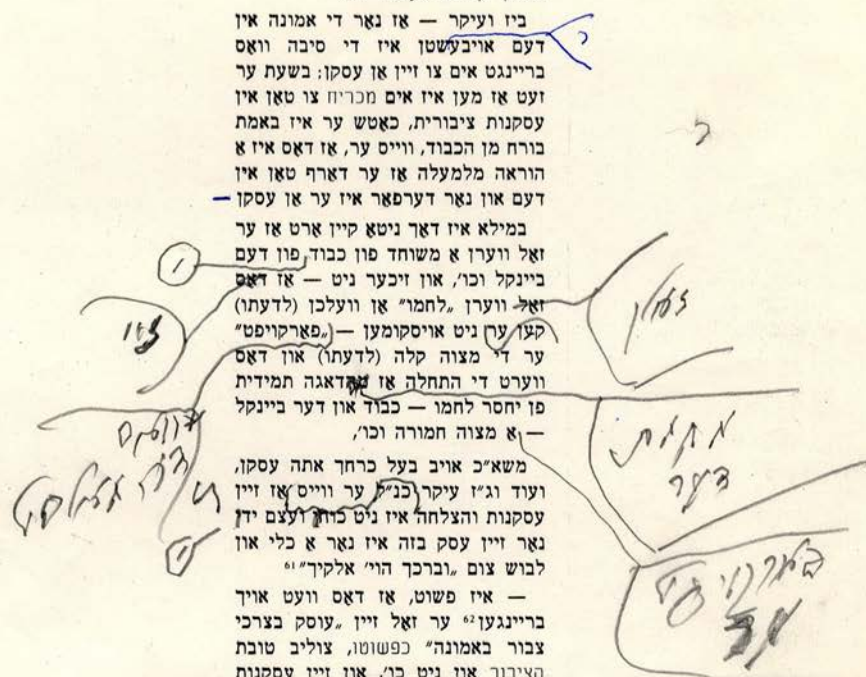 ביז ועיקר — אַז נאָר די אמונה אין
דעם אויבעשטן איז די סיבה וואָס
בריינגט אים צו זיין אַן עסקן: בשעת ער
זעט אַז מען איז אים מכריח צו טאָן אין
עסקנות ציבורית, כאָטש ער איז באמת
בורח מן הכבוד, ווייס ער, אַז דאָס איז אַ
הוראה מלמעלה אַז ער דאַרף טאָן אין
דעם און נאָר דערפאַר איז ער אַן עסקן —
במילא איז דאָך ניטאָ קיין אָרט אַז ער
זאָל ווערן אַ משוחד פון כבוד פון דעם
ביינקל וכו', און זיכער ניט — אַז דאָס
זאָל ווערן „לחמו" אָן וועלכן (לדעתו)
קען ער ניט אויסקומען — „פאַרקויפט"
ער די מצוה קלה (לדעתו) און דאָס
ווערט די התחלה אַז דאגה תמידית
פן יחסר לחמו — כבוד און דער ביינקל
— אַ מצוה חמורה וכו',
משא"כ אויב בעל כרחך אתה עסקן,
ועוד וג"ז עיקר כנ"ל ער ווייס אַז זיין
עסקנות והצלחה איז ניט כוחו ועצם ידו
נאָר זיין עסק בזה איז נאָר אַ כלי און
לבוש צום „וברכך הוי' אלקיך"⁶¹
— איז פשוט, אַז דאָס וועט אויך
בריינגען⁶² ער זאָל זיין „עוסק בצרכי
צבור באמונה" כפשוטו, צוליב טובת
הציבור און ניט כו', און זיין עסקנות
מחמת
דער